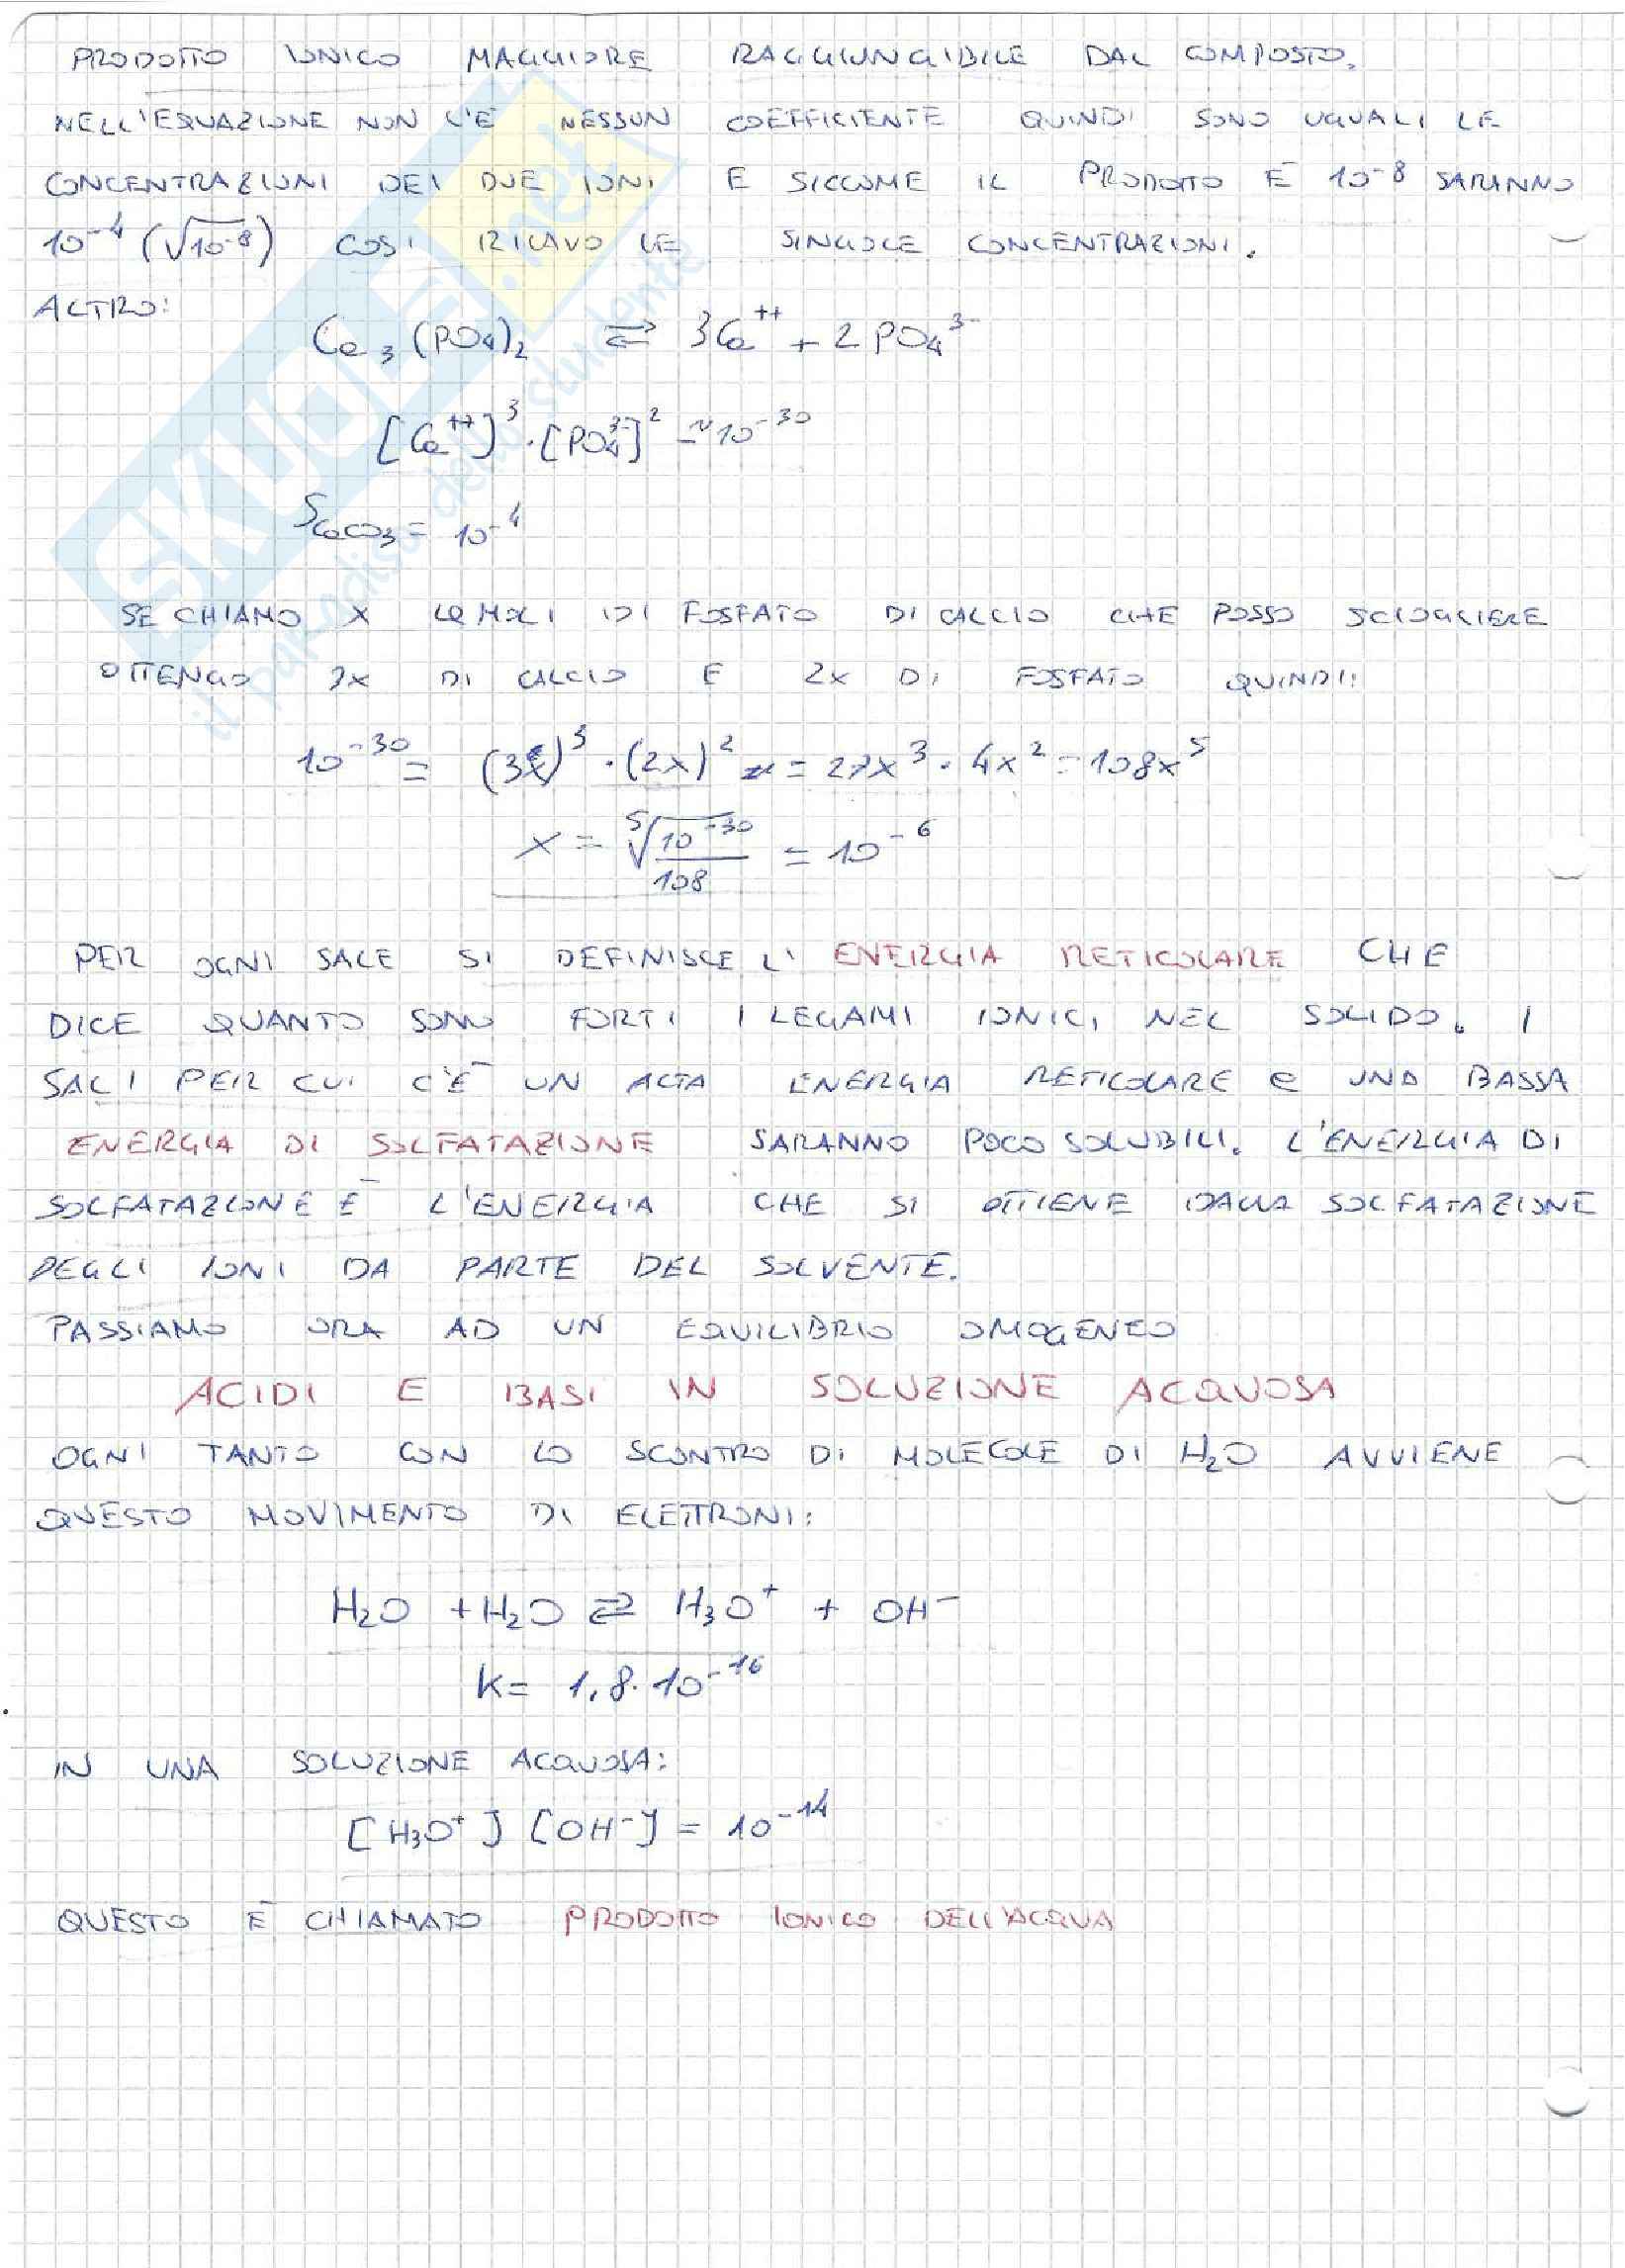 PRODOTTO IONICO MAGGIORE RAGGIUNGIBILE DAL COMPOSTO.
NELL'EQUAZIONE NON C'È NESSUN COEFFICIENTE QUINDI SONO UGUALI LE
CONCENTRAZIONI DEI DUE IONI E SICCOME IL PRODOTTO È 10⁻⁸ SARANNO
10⁻⁴ (√10⁻⁸) COSÌ RICAVO LE SINGOLE CONCENTRAZIONI.
ALTRO:
Ca₃(PO₄)₂ ⇄ 3Ca⁺⁺ + 2PO₄³⁻
[Ca⁺⁺]³·[PO₄³⁻]² ≃ 10⁻³⁰
S CaCO₃ = 10⁻⁴
SE CHIAMO X LE MOLI DI FOSFATO DI CALCIO CHE POSSO SCIOGLIERE
OTTENGO 3X DI CALCIO E 2X DI FOSFATO QUINDI:
10⁻³⁰ = (3x)³·(2x)² = 27x³·4x² = 108x⁵
x = ⁵√10⁻³⁰/108 = 10⁻⁶
PER OGNI SALE SI DEFINISCE L'ENERGIA RETICOLARE CHE
DICE QUANTO SONO FORTI I LEGAMI IONICI NEL SOLIDO. I
SALI PER CUI C'È UN ALTA ENERGIA RETICOLARE e UNA BASSA
ENERGIA DI SOLFATAZIONE SARANNO POCO SOLUBILI. L'ENERGIA DI
SOLFATAZIONE È L'ENERGIA CHE SI OTTIENE DALLA SOLFATAZIONE
DEGLI IONI DA PARTE DEL SOLVENTE.
PASSIAMO ORA AD UN EQUILIBRIO OMOGENEO
ACIDI E BASI IN SOLUZIONE ACQUOSA
OGNI TANTO CON LO SCONTRO DI MOLECOLE DI H₂O AVVIENE
QUESTO MOVIMENTO DI ELETTRONI:
H₂O + H₂O ⇄ H₃O⁺ + OH⁻
K = 1,8·10⁻¹⁶
IN UNA SOLUZIONE ACQUOSA:
[H₃O⁺][OH⁻] = 10⁻¹⁴
QUESTO È CHIAMATO PRODOTTO IONICO DELL'ACQUA
SKUOLA.net
il paradiso dello studente